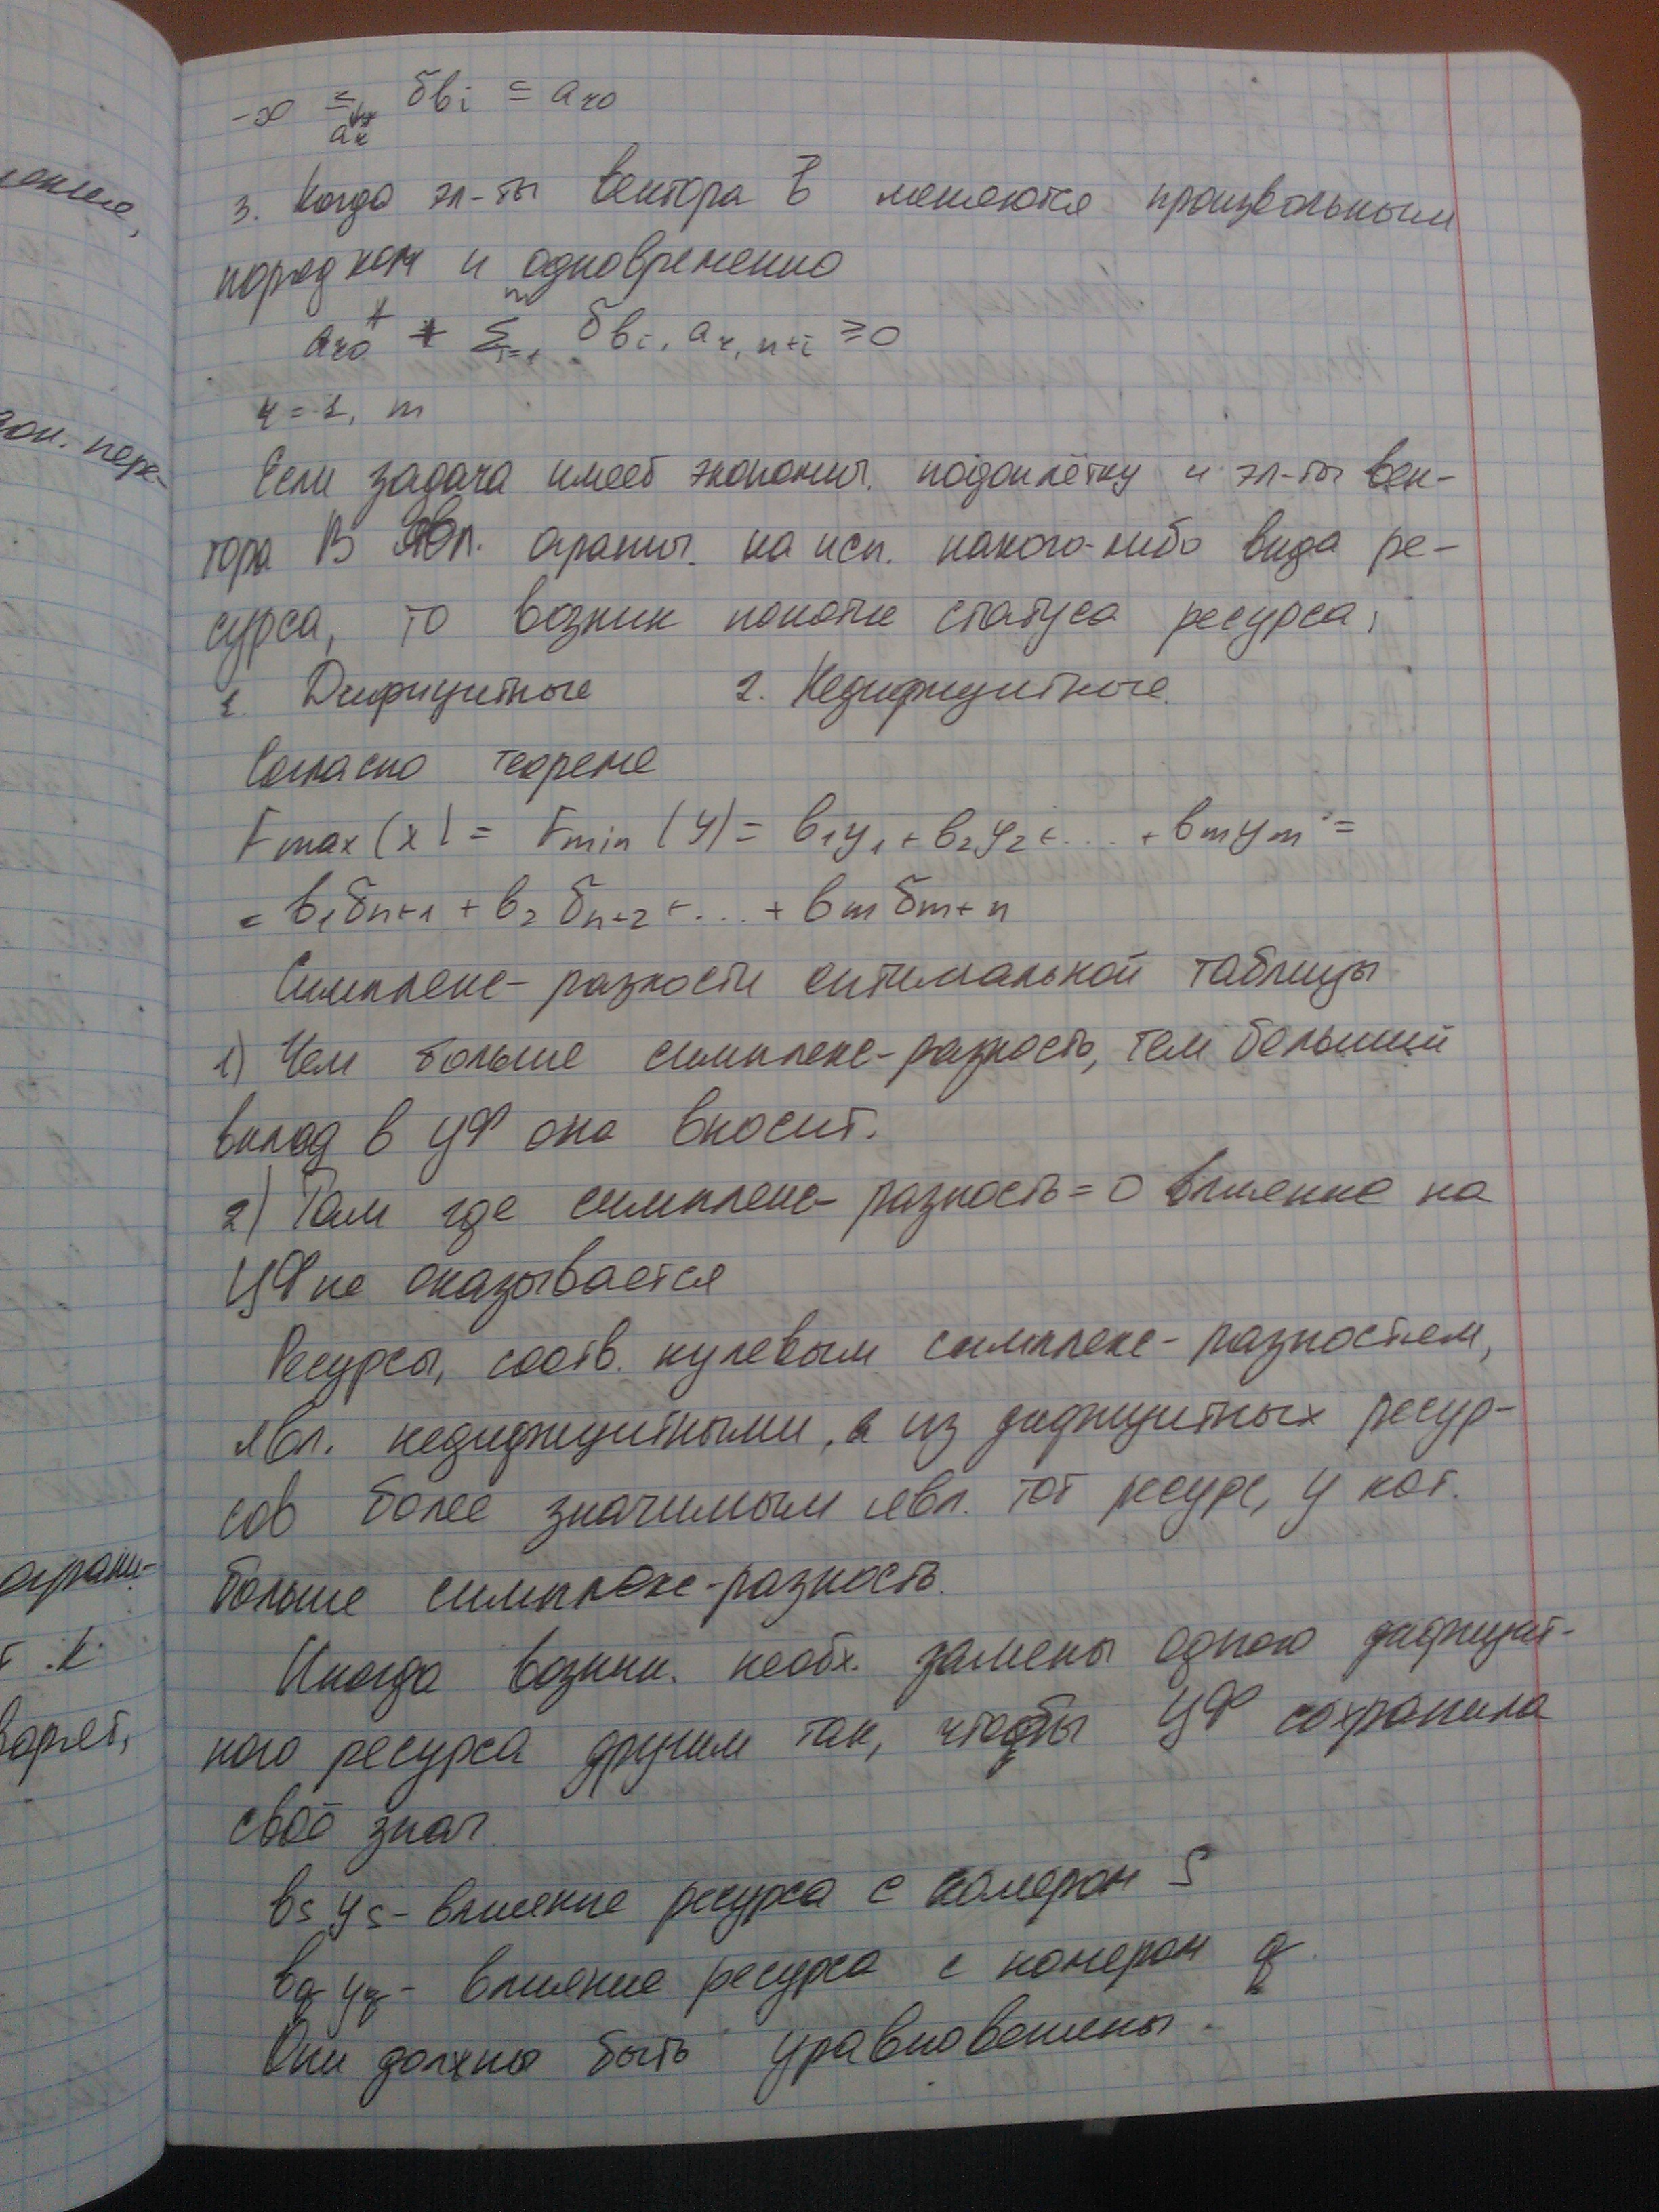 -∞ ≤ δbi ≤ ar0
ar*
3. Когда эл-ты вектора b меняются произвольным
порядком и одновременно
ar0* + Σ i=1 m δbi, ar, n+i ≥ 0
r = 1, m
Если задача имеет экономич. подоплётку и эл-ты век-
тора B явл. огранич. на исп. какого-либо вида ре-
сурса, то возник понятие статуса ресурса,
1. Дефицитные 2. Недифицитные.
Согласно теореме
Fmax(x) = Fmin(y) = b1y1 + b2y2 + ... + bmym =
= b1δn+1 + b2δn+2 + ... + bmδm+n
Симплекс-разности оптимальной таблицы
1) Чем больше симплекс-разность, тем больший
вклад в ЦФ она вносит.
2) Там где симплекс-разность = 0 влияние на
ЦФ не оказывается
Ресурсы, соотв. нулевым симплекс-разностям,
явл. недифицитными, а из дифицитных ресур-
сов более значимым явл. тот ресурс, у кот.
больше симплекс-разность.
Иногда возник. необх. замены одного дифицит-
ного ресурса другим так, чтобы ЦФ сохранила
своё знач.
bs ys - влияние ресурса с номером S
bq yq - влияние ресурса с номером q
Они должны быть уравновешены.
зон. пере-
ограни-
т.к.